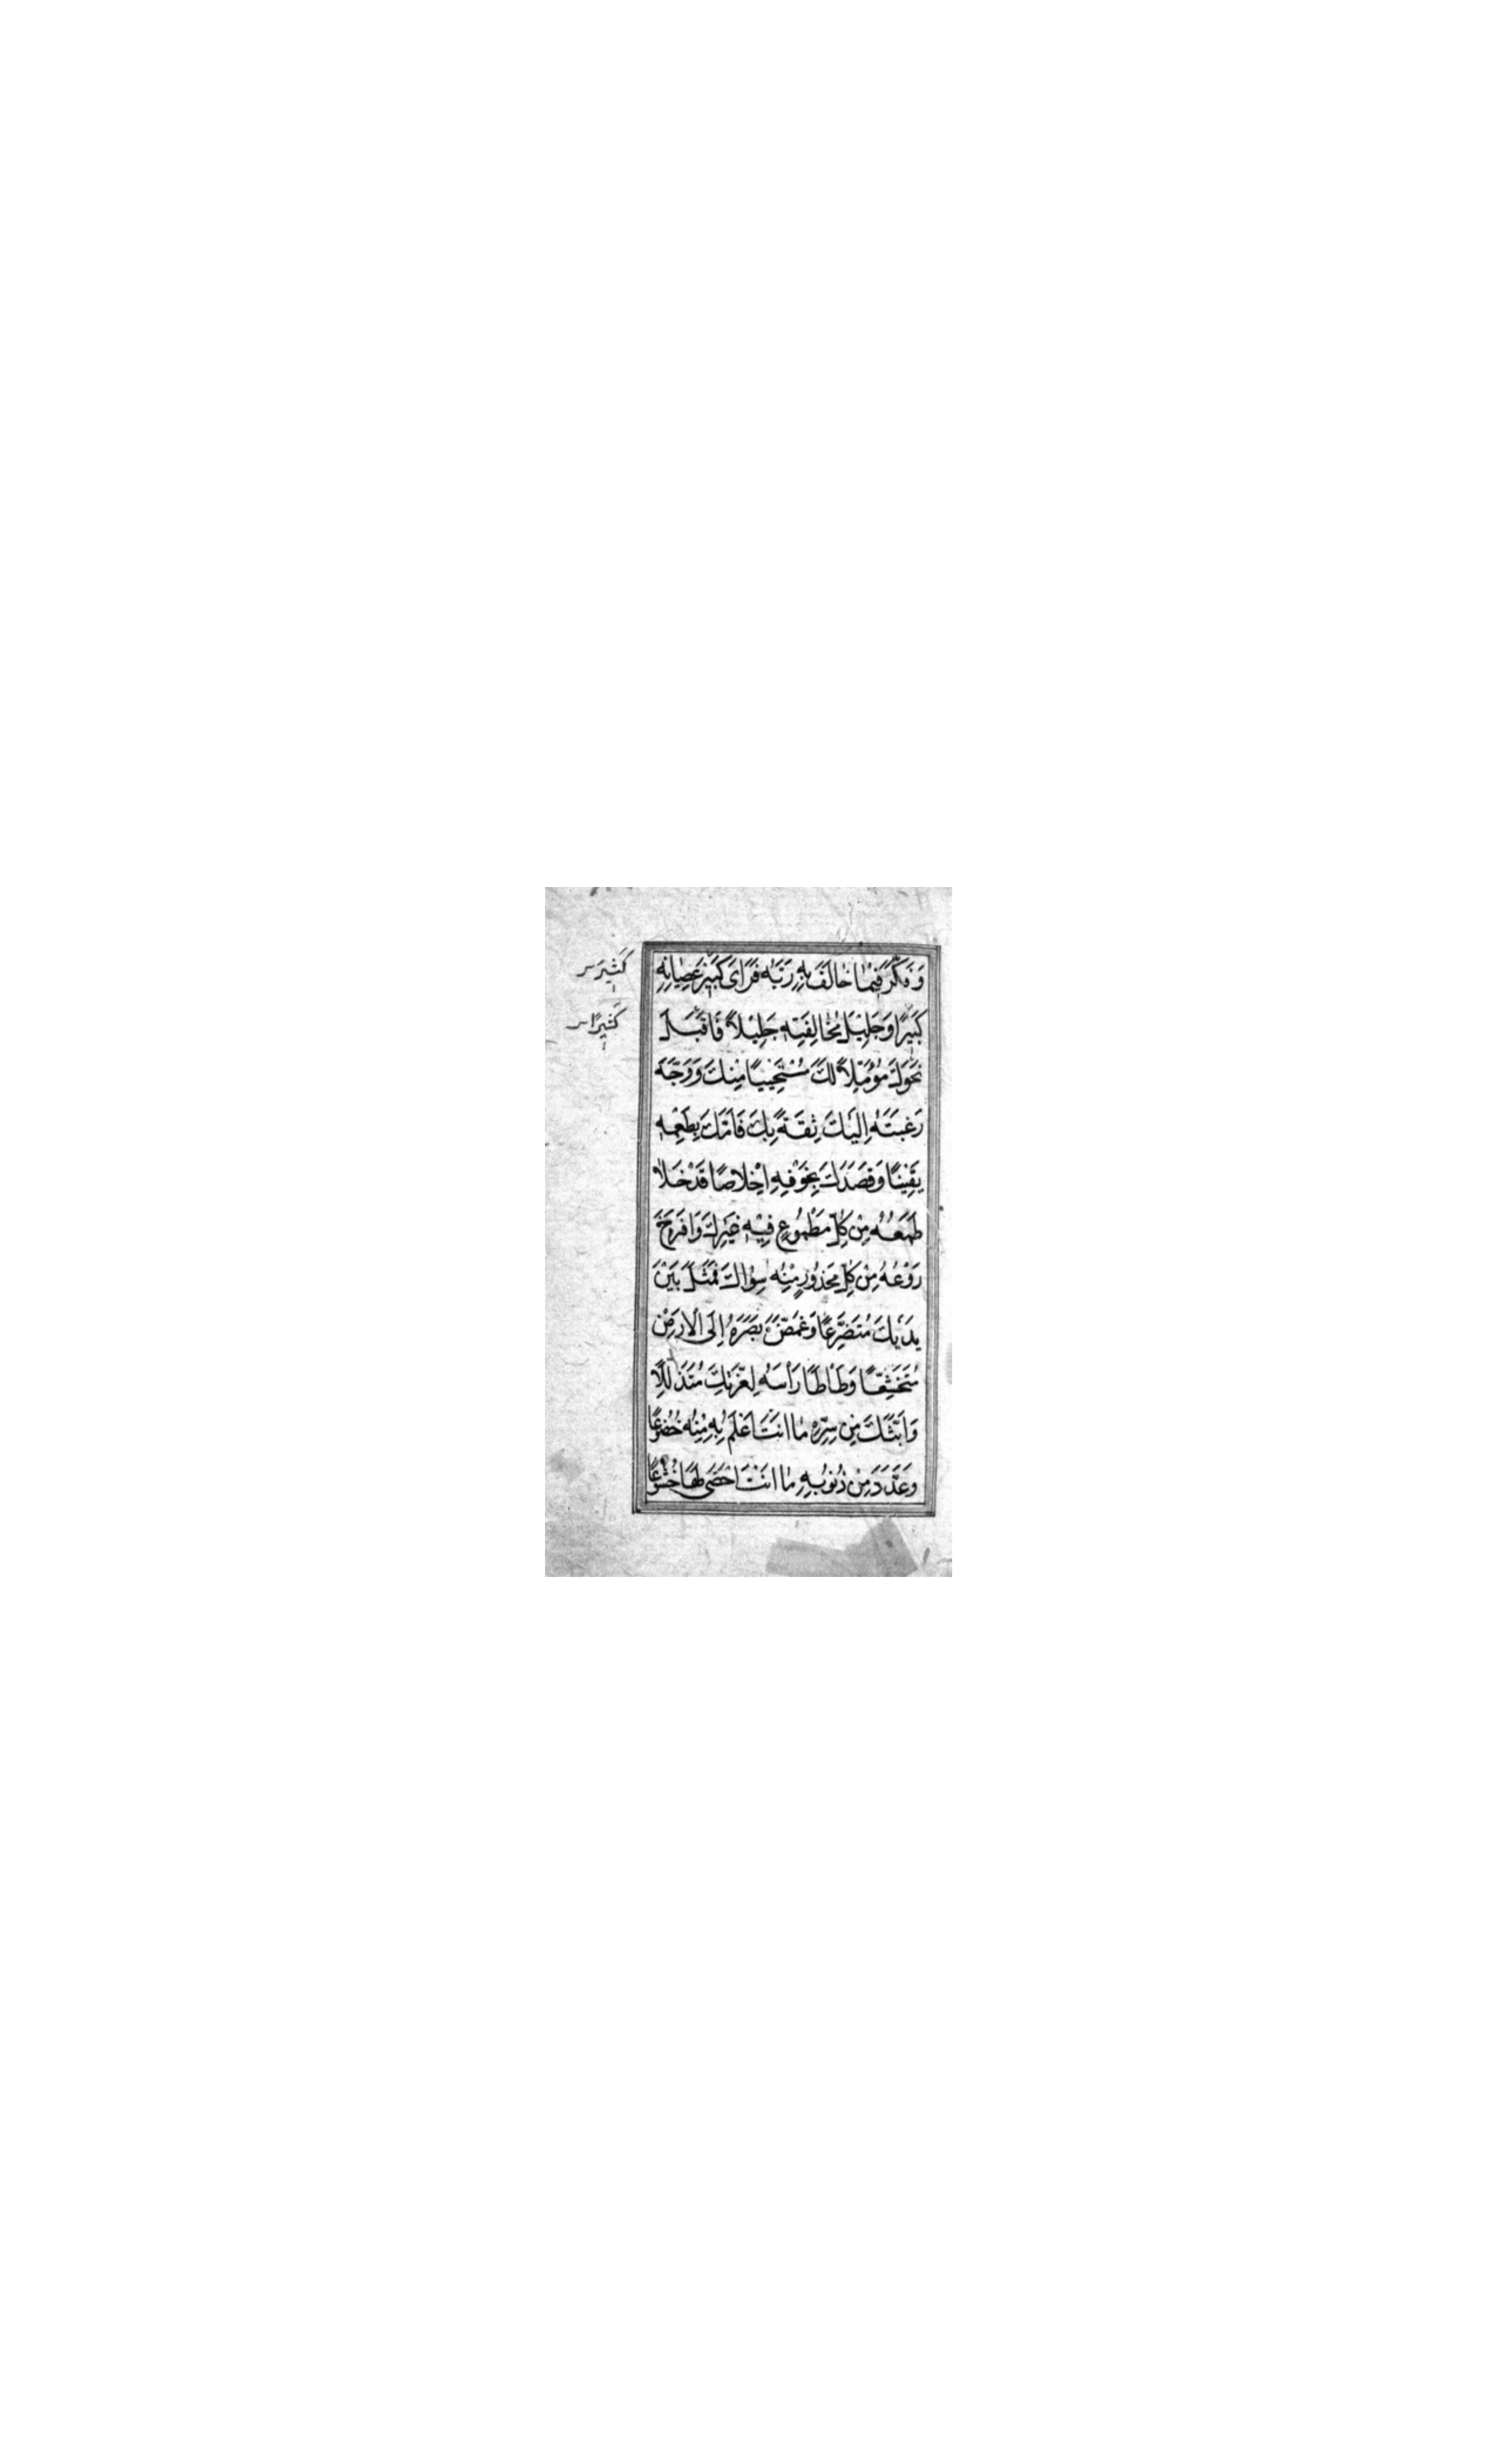 وَفَكَّرَ فِيمَا خَالَفَ بِهِ رَبَّهُ فَرَاىَ كَبِيرَ عِصْيَانِهِ
كَبِيرًا وَجَلِيلَ مُخَالِفَتِهِ جَلِيلًا فَاَقْبَلَ
نَحْوَكَ مُؤَمِّلًا لَكَ مُسْتَحْيِيًا مِنْكَ وَوَجَّهَ
رَغْبَتَهُ اِلَيْكَ ثِقَةً بِكَ فَاَمَّكَ بِطَمَعِهِ
يَقِينًا وَقَصَدَكَ بِخَوْفِهِ اِخْلَاصًا قَدْ خَلَا
طَمَعُهُ مِنْ كُلِّ مَطْمُوعٍ فِيهِ غَيْرِكَ وَاَفْرَخَ
رَوْعُهُ مِنْ كُلِّ مَحْذُورٍ مِنْهُ سِوَاكَ فَمَثَلَ بَيْنَ
يَدَيْكَ مُتَضَرِّعًا وَغَمَّضَ بَصَرَهُ اِلَى الْاَرْضِ
مُتَخَشِّعًا وَطَاْطَاَ رَاْسَهُ لِعِزَّتِكَ مُتَذَلِّلًا
وَاَبَثَّكَ مِنْ سِرِّهِ مَا اَنْتَ اَعْلَمُ بِهِ مِنْهُ خُضُوعًا
وَعَدَّدَ مِنْ ذُنُوبِهِ مَا اَنْتَ اَحْصَى لَهَا خُشُوعًا
كَثِيرَ
كَثِيرًا